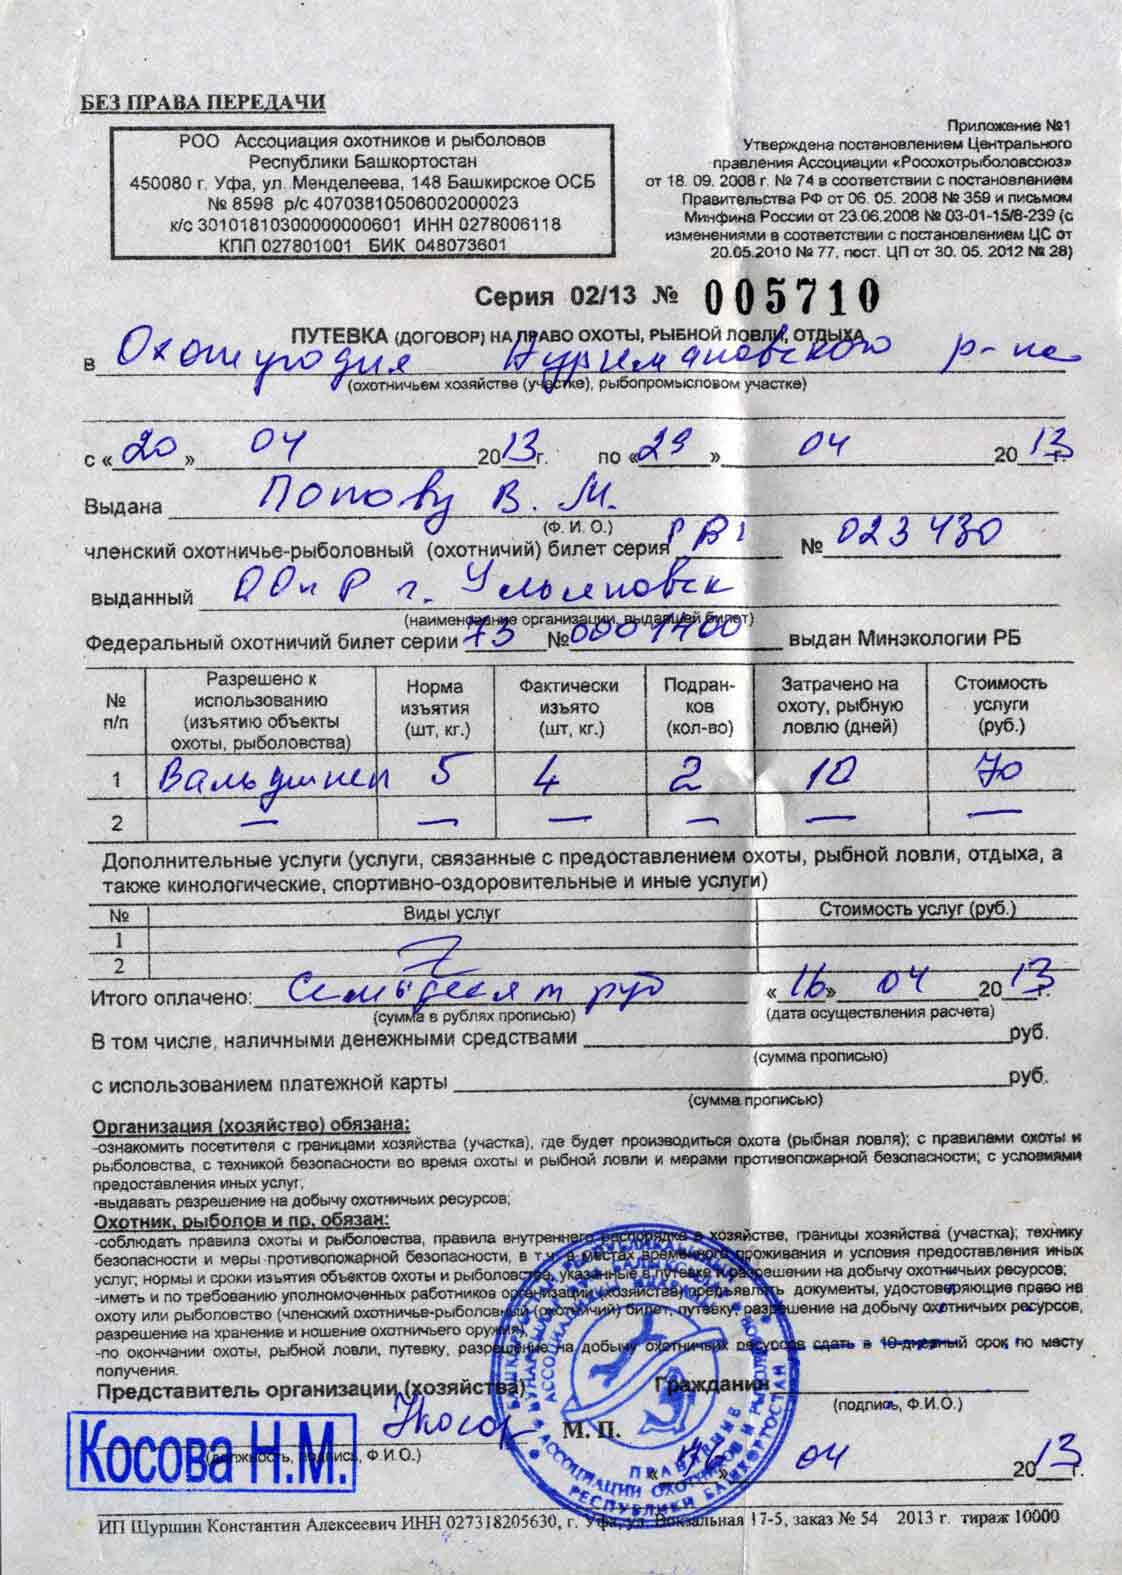 БЕЗ ПРАВА ПЕРЕДАЧИ
РОО Ассоциация охотников и рыболовов
Республики Башкортостан
450080 г. Уфа, ул. Менделеева, 148 Башкирское ОСБ
№ 8598 р/с 40703810506002000023
к/с 30101810300000000601 ИНН 0278006118
КПП 027801001 БИК 048073601
Приложение №1
Утверждена постановлением Центрального
правления Ассоциации «Росохотрыболовсоюз»
от 18. 09. 2008 г. № 74 в соответствии с постановлением
Правительства РФ от 06. 05. 2008 № 359 и письмом
Минфина России от 23.06.2008 № 03-01-15/8-239 (с
изменениями в соответствии с постановлением ЦС от
20.05.2010 № 77, пост. ЦП от 30. 05. 2012 № 28)
Серия 02/13 № 005710
ПУТЕВКА (ДОГОВОР) НА ПРАВО ОХОТЫ, РЫБНОЙ ЛОВЛИ, ОТДЫХА
в Охотугодия Нуримановского р-на
(охотничьем хозяйстве (участке), рыбопромысловом участке)
с «20» 04 2013г. по «29» 04 2013г.
Выдана Попову В. М.
(Ф. И. О.)
членский охотничье-рыболовный (охотничий) билет серия № 023430
выданный ООиР г. Ульяновск
(наименование организации, выдавшей билет)
Федеральный охотничий билет серии 73 №0001400 выдан Минэкологии РБ
№ п/п Разрешено к использованию (изъятию объекты охоты, рыболовства) Норма изъятия (шт, кг.) Фактически изъято (шт, кг.) Подран-ков (кол-во) Затрачено на охоту, рыбную ловлю (дней) Стоимость услуги (руб.)
1 Вальдшнеп 5 4 2 10 70
2 — — — — — —
Дополнительные услуги (услуги, связанные с предоставлением охоты, рыбной ловли, отдыха, а
также кинологические, спортивно-оздоровительные и иные услуги)
№ Виды услуг Стоимость услуг (руб.)
1
2
Итого оплачено: Семьдесят руб «16» 04 2013г.
(сумма в рублях прописью) (дата осуществления расчета)
В том числе, наличными денежными средствами руб.
(сумма прописью)
с использованием платежной карты руб.
(сумма прописью)
Организация (хозяйство) обязана:
-ознакомить посетителя с границами хозяйства (участка), где будет производиться охота (рыбная ловля); с правилами охоты и
рыболовства, с техникой безопасности во время охоты и рыбной ловли и мерами противопожарной безопасности; с условиями
предоставления иных услуг;
-выдавать разрешение на добычу охотничьих ресурсов;
Охотник, рыболов и пр. обязан:
-соблюдать правила охоты и рыболовства, правила внутреннего распорядка в хозяйстве, границы хозяйства (участка); технику
безопасности и меры противопожарной безопасности, в т.ч. в местах временного проживания и условия предоставления иных
услуг; нормы и сроки изъятия объектов охоты и рыболовства, указанные в путевке и разрешении на добычу охотничьих ресурсов;
-иметь и по требованию уполномоченных работников организации (хозяйства) предъявлять документы, удостоверяющие право на
охоту или рыболовство (членский охотничье-рыболовный (охотничий) билет, путевку, разрешение на добычу охотничьих ресурсов,
разрешение на хранение и ношение охотничьего оружия);
-по окончании охоты, рыбной ловли, путевку, разрешение на добычу охотничьих ресурсов сдать в 10-дневный срок по месту
получения.
Представитель организации (хозяйства) Гражданин
(подпись, Ф.И.О.)
М. П.
Косова Н.М.
(должность, подпись, Ф.И.О.)
«16» 04 2013г.
ПРАВЛЕНИЕ
АССОЦИАЦИИ ОХОТНИКОВ И РЫБОЛОВОВ
РЕСПУБЛИКИ БАШКОРТОСТАН
ИП Шуршин Константин Алексеевич ИНН 027318205630, г. Уфа, ул. Вокзальная 17-5, заказ № 54 2013 г. тираж 10000